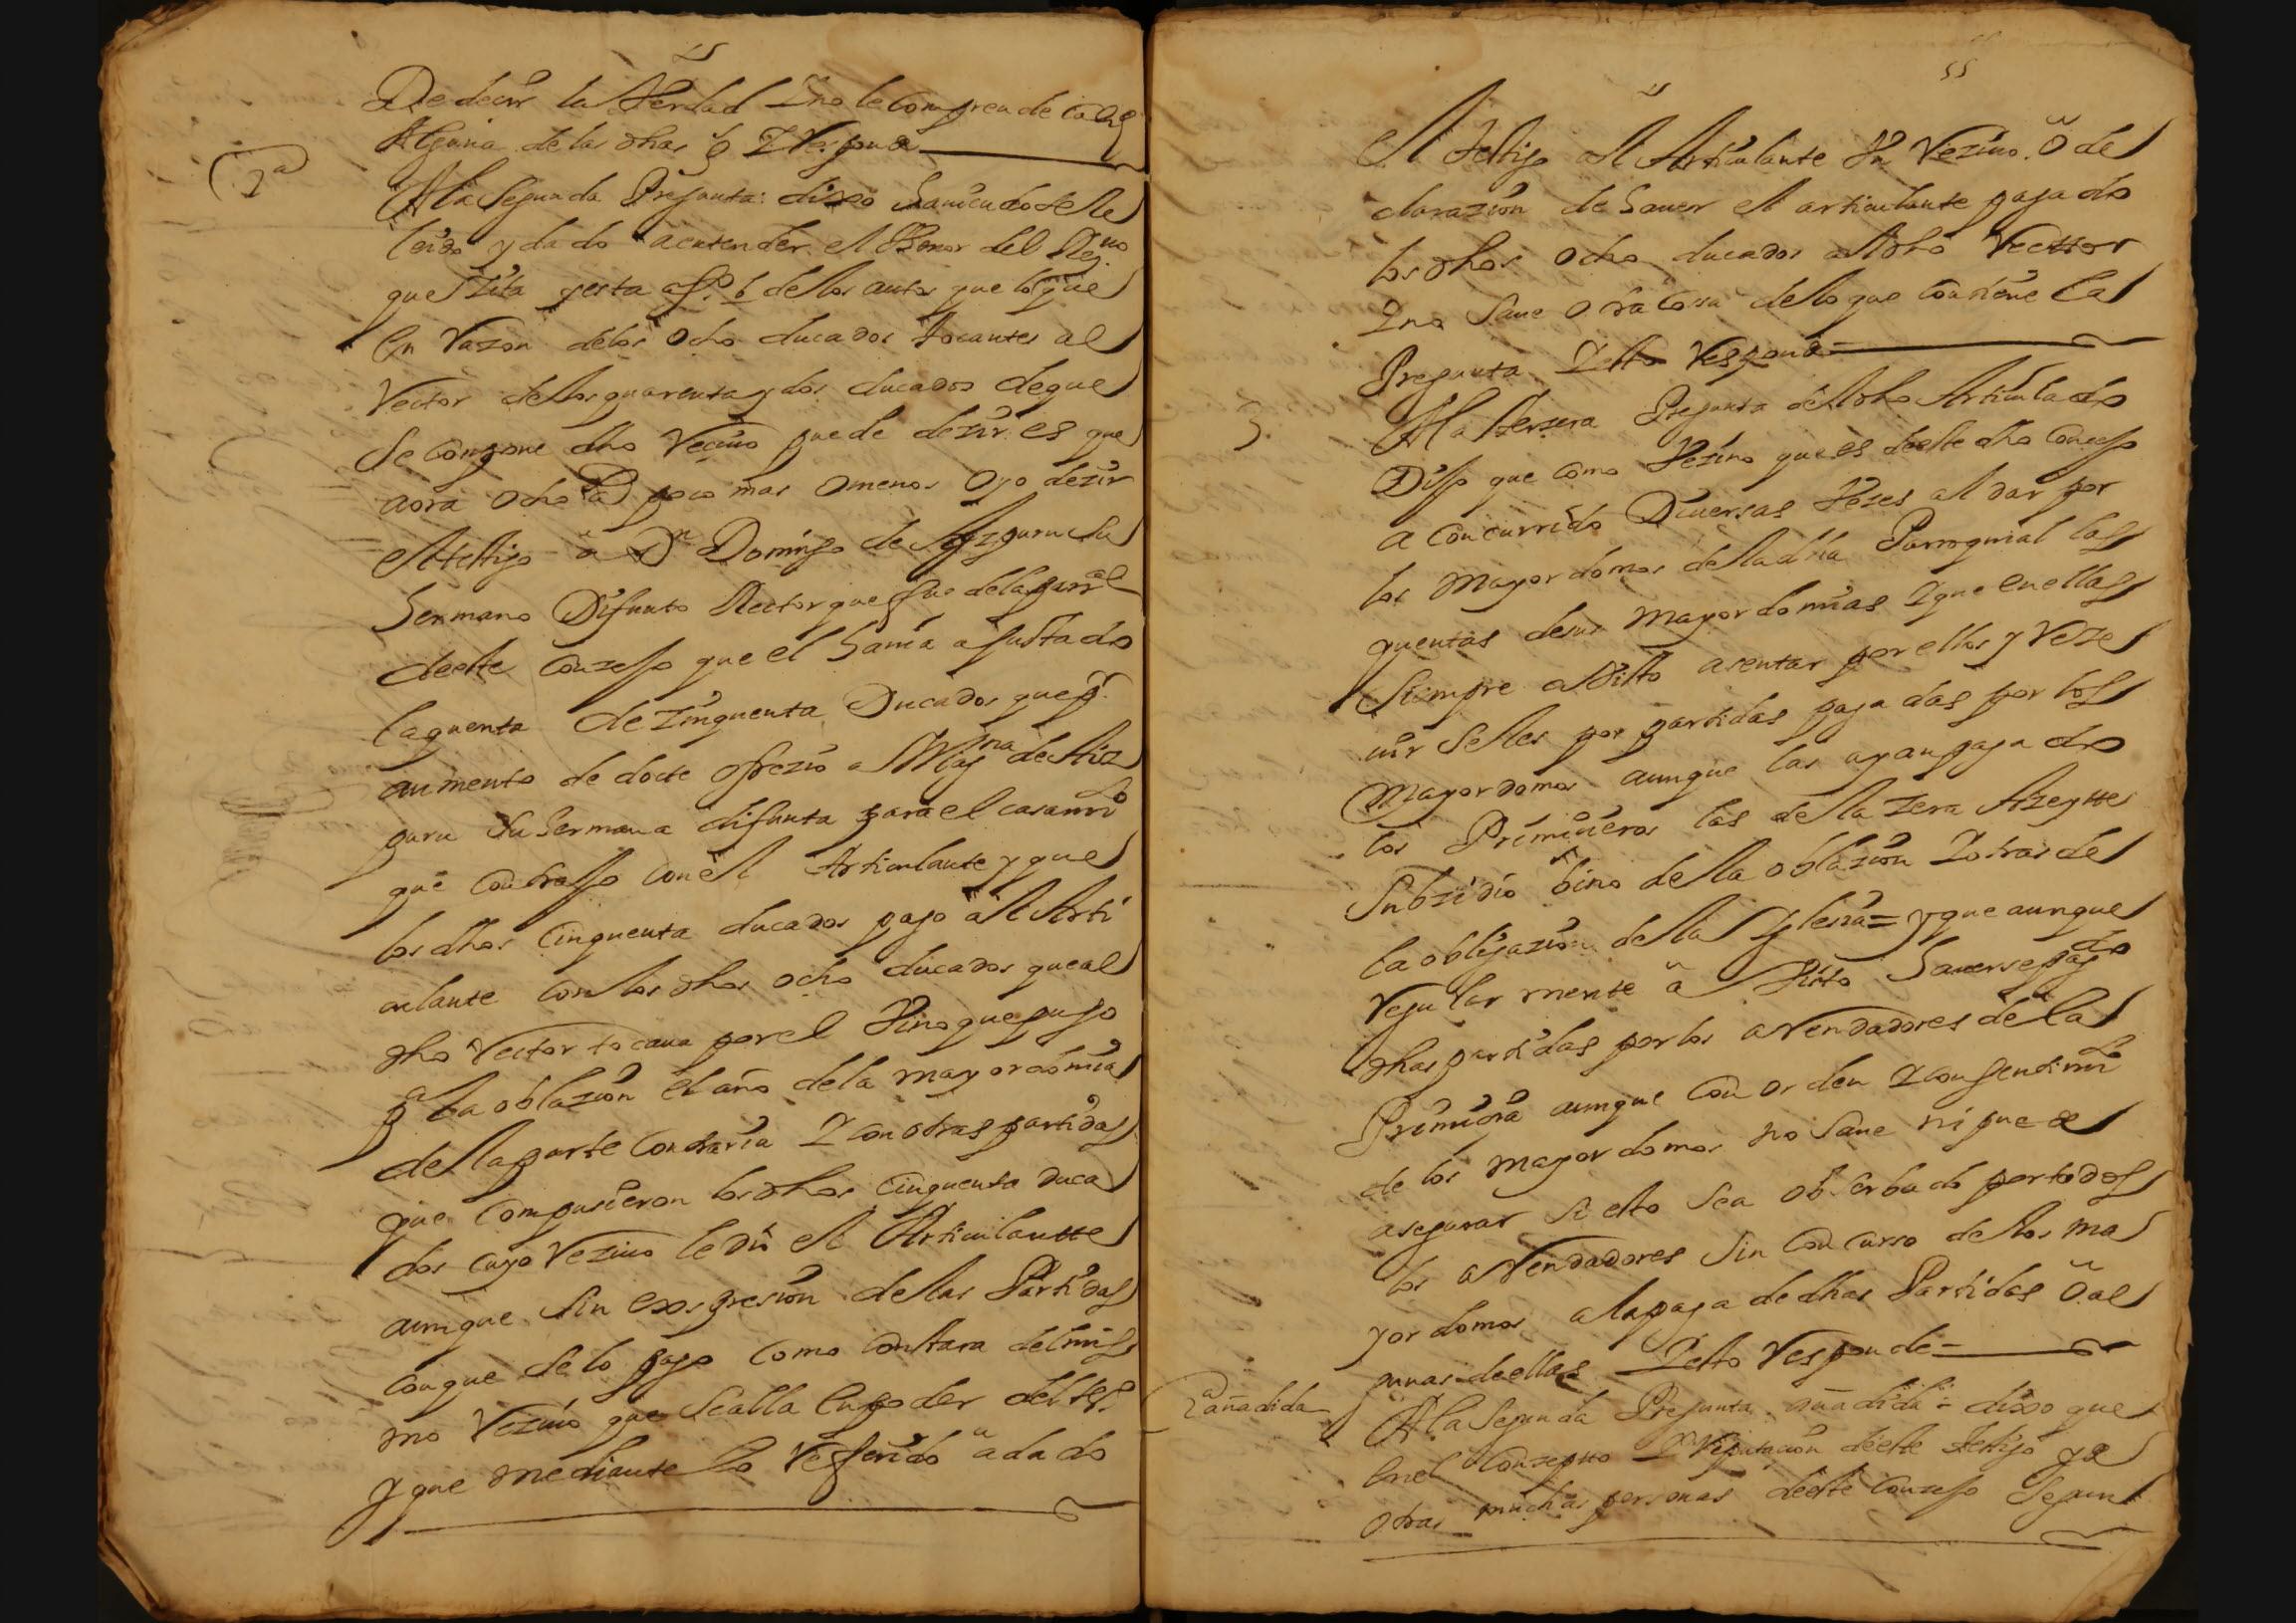 De decir la Verdad Y no le Comprende Cosa
Alguna de las dhas g Y Respondio
2ª
A la Segunda Pregunta: dixo hauiendosele
leido y dado a entender el thenor del Rezuo
que Zita y esta a fº 6 de los autos que lo que
en Razon de los ocho ducados tocantes al
Rector de los quarenta y dos ducados de que
se Compone dho Reciuo puede dezir es que
aora ocho a poco mas o menos oyo dezir
el testigo a Dn Domingo de su
hermano Difunto Rector que fue de la parral
de este Conzejo que el hauia ajustado
la quenta de Zinquenta Ducados que pr
aumento de dote ofrezio a de Aiz
para su hermana difunta para el casamto
que Contrajo con el Articulante y que
los dhos Cinquenta ducados pago al Arti
culante con los dhos ocho ducados que al
dho Rector tocaua por el Vino que puso
pª la oblazion el año de la mayordomia
de la parte Contraria Y con otras partidas
que Compusieron los dhos Cinquenta duca
dos cuyo Reziuo le dio el Articulantte
aunque sin expresion de las Partidas
con que se lo pago como Constara del mis
mo Reziuo que se alla en poder del tesº
y que mediante lo Refferido a dado
55
el testigo al Articulante Un Reziuo o de
clarazion de hauer el articulante pagado
los dhos ocho ducados al dho Recttor
Y no saue otra Cosa de lo que Contiene la
Pregunta Y esto Respondio=
3.
A la terzera Pregunta del dho Articulado
Dijo que como Vezino que es de este dho Concejo
a Concurrido Diuersas Vezes al dar por
los mayordomos de la dha Parroquial las
quentas de sus mayordomias Y que en ellas
siempre a Visto asentar por ellos y Reze
uir seles por partidas pagadas por los
mayordomos aunque las ayan pagado
los Primiçieros las de la zera Azeytte
subzidio bino de la oblazion Y otras de
la obligazion de la Yglesia= y que aunque
Regularmente a Visto hauerse pagdo
dhas partidas por los arrendadores de la
Primizia aunque Con orden Y consentimto
de los mayordomos no saue ni puede
asegurar si esto sea obserbado por todos
los arrendadores sin concurso de los ma
yordomos a la paga de dhas Partidas o al
gunas de ellas Y esto Responde=
2ª añadida
A la Segunda Pregunta añadida= dixo que
en el Conzeptto Y Reputacion de este testigo y de
otras muchas personas de este Conzejo Segun